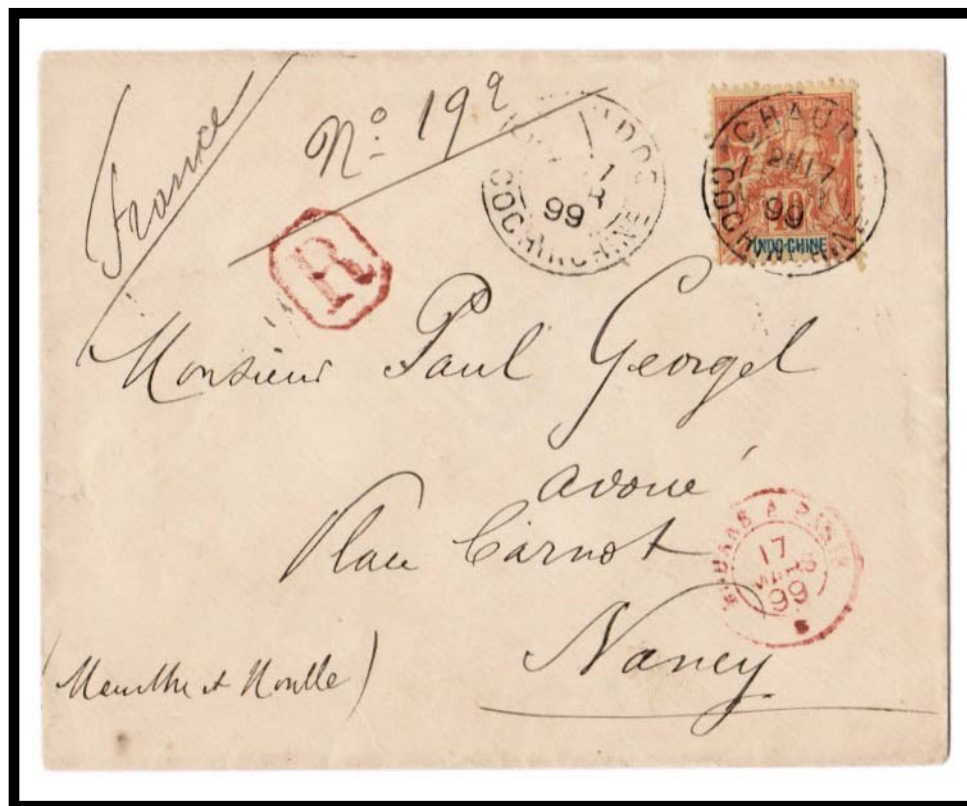 France
Nº 199
R
COCHINCHINE
99
CHAUDOC
COCHINCHINE
99
40
INDO-CHINE
Monsieur Paul Georgel
avoué
Place Carnot
Nancy
(Meurthe et Moselle)
PARIS
17
MARS
99